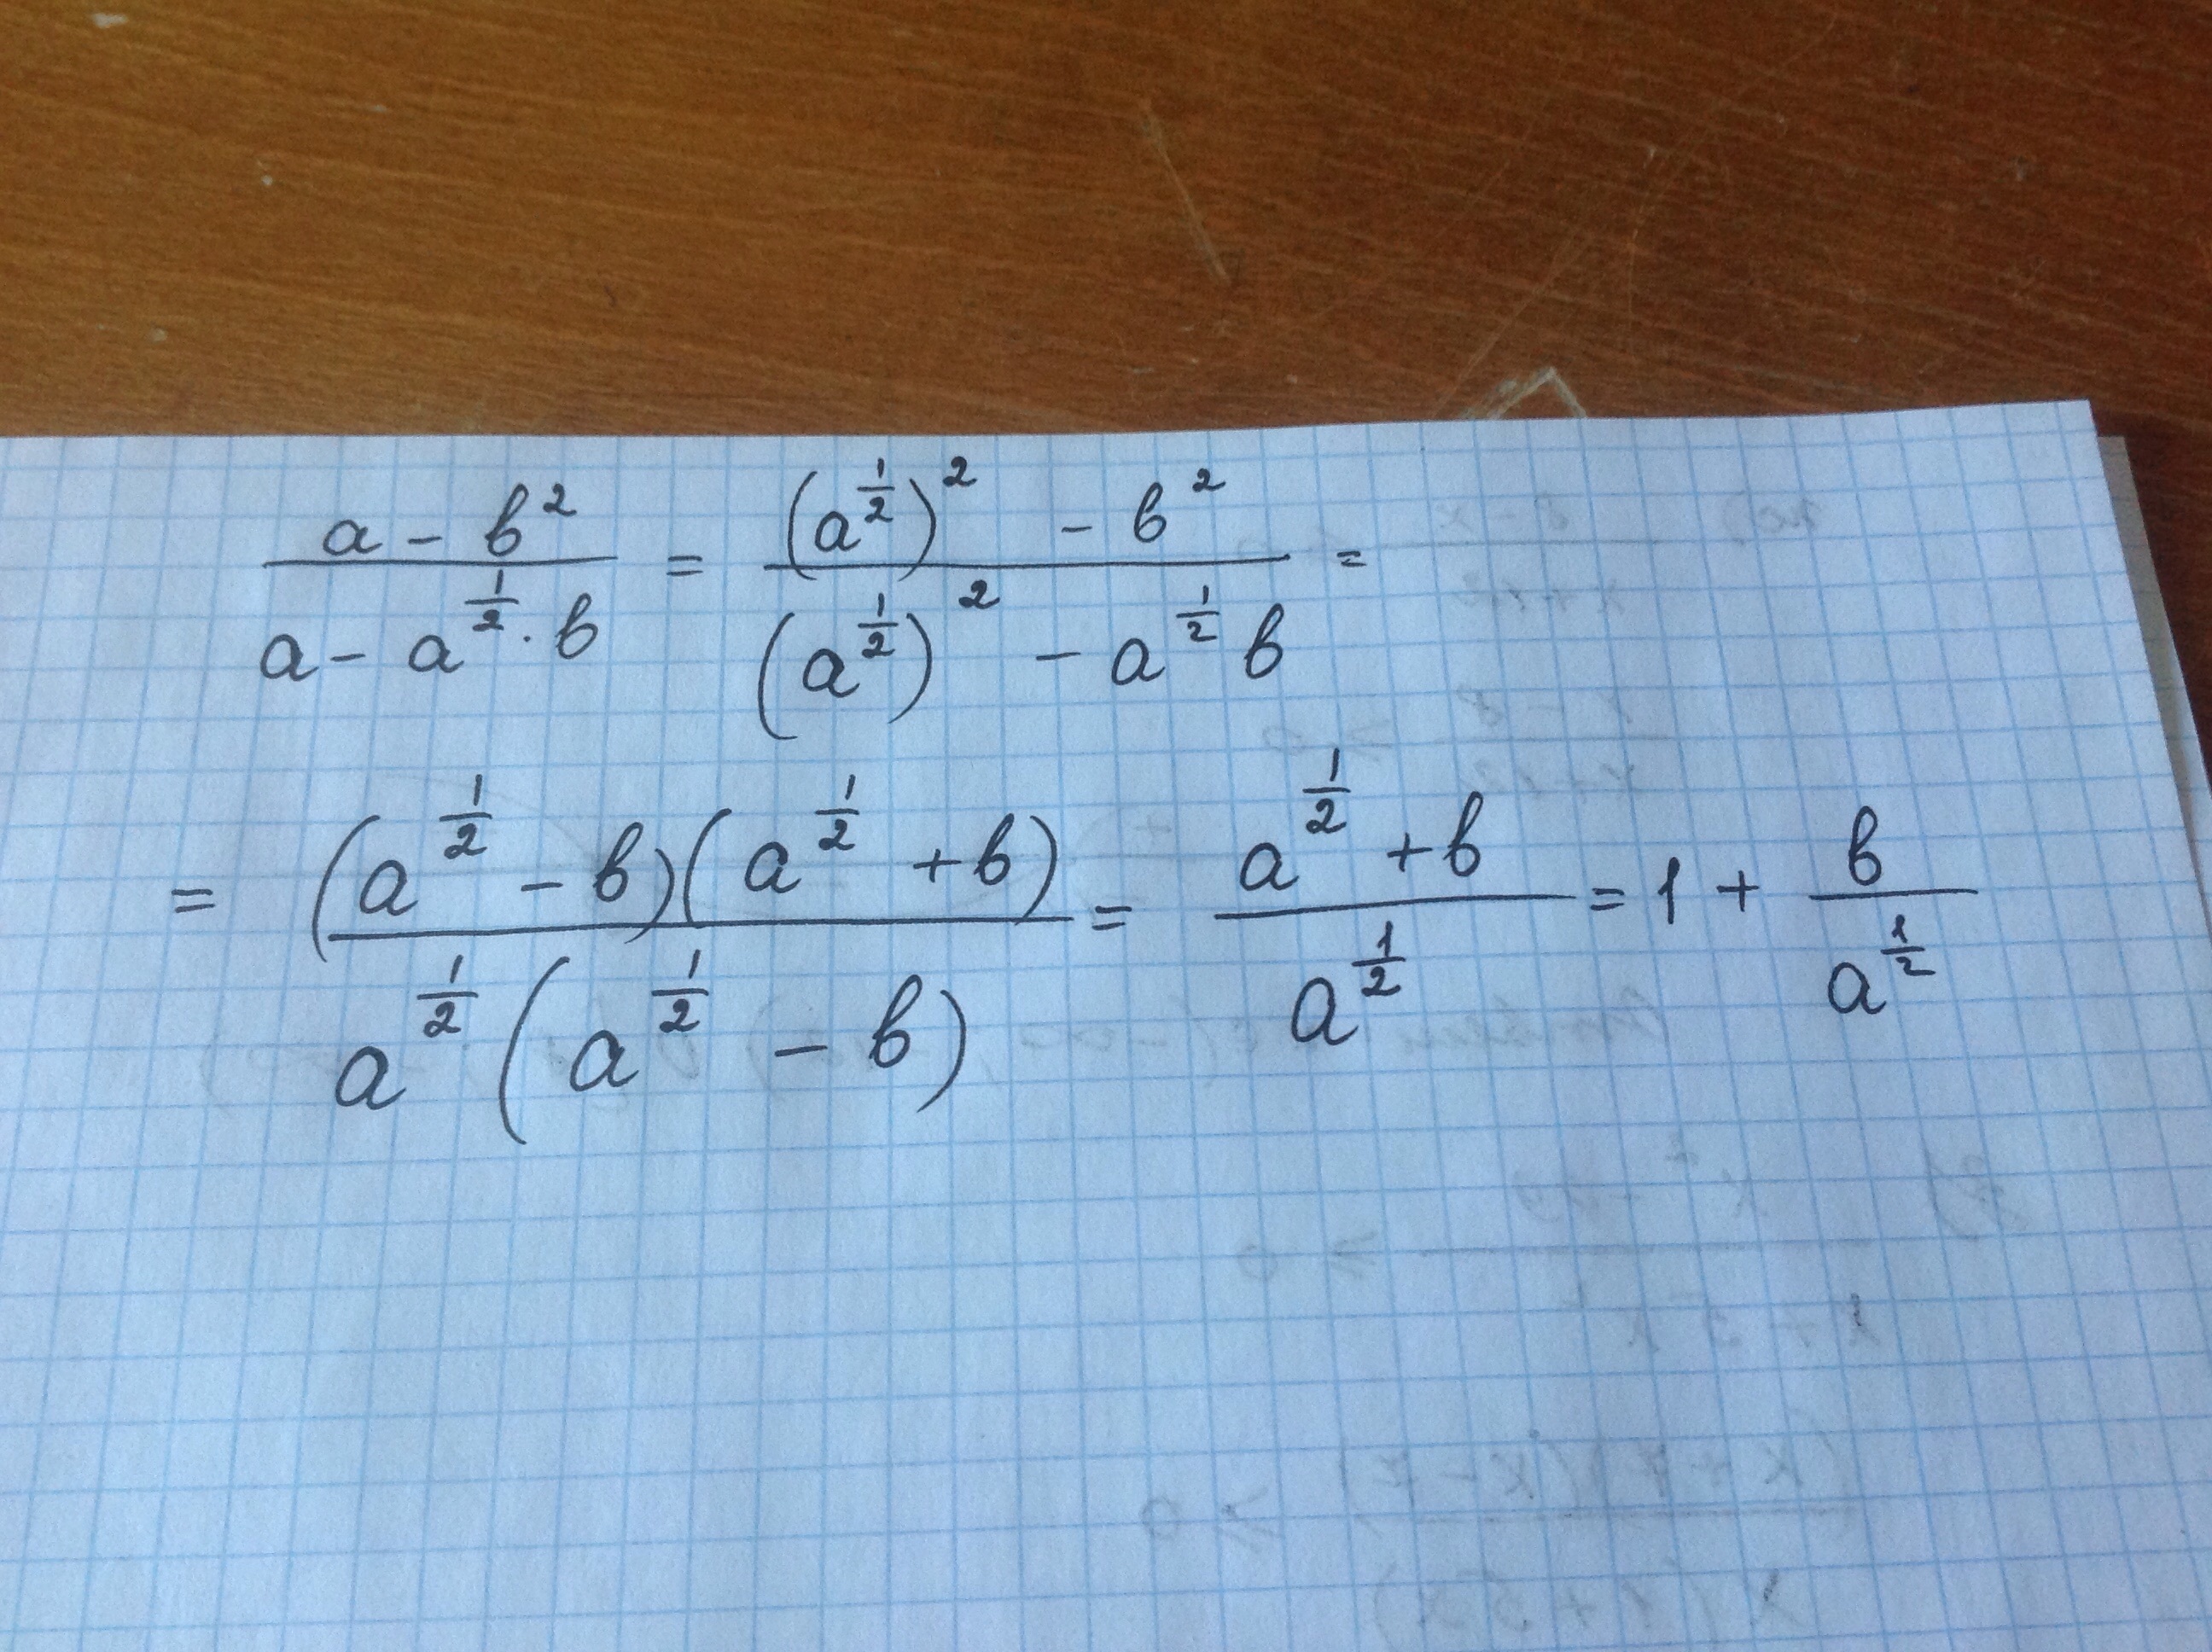 \frac{a - b^2}{a - a^{\frac{1}{2}} \cdot b} = \frac{(a^{\frac{1}{2}})^2 - b^2}{(a^{\frac{1}{2}})^2 - a^{\frac{1}{2}} b} =
= \frac{(a^{\frac{1}{2}} - b)(a^{\frac{1}{2}} + b)}{a^{\frac{1}{2}} (a^{\frac{1}{2}} - b)} = \frac{a^{\frac{1}{2}} + b}{a^{\frac{1}{2}}} = 1 + \frac{b}{a^{\frac{1}{2}}}